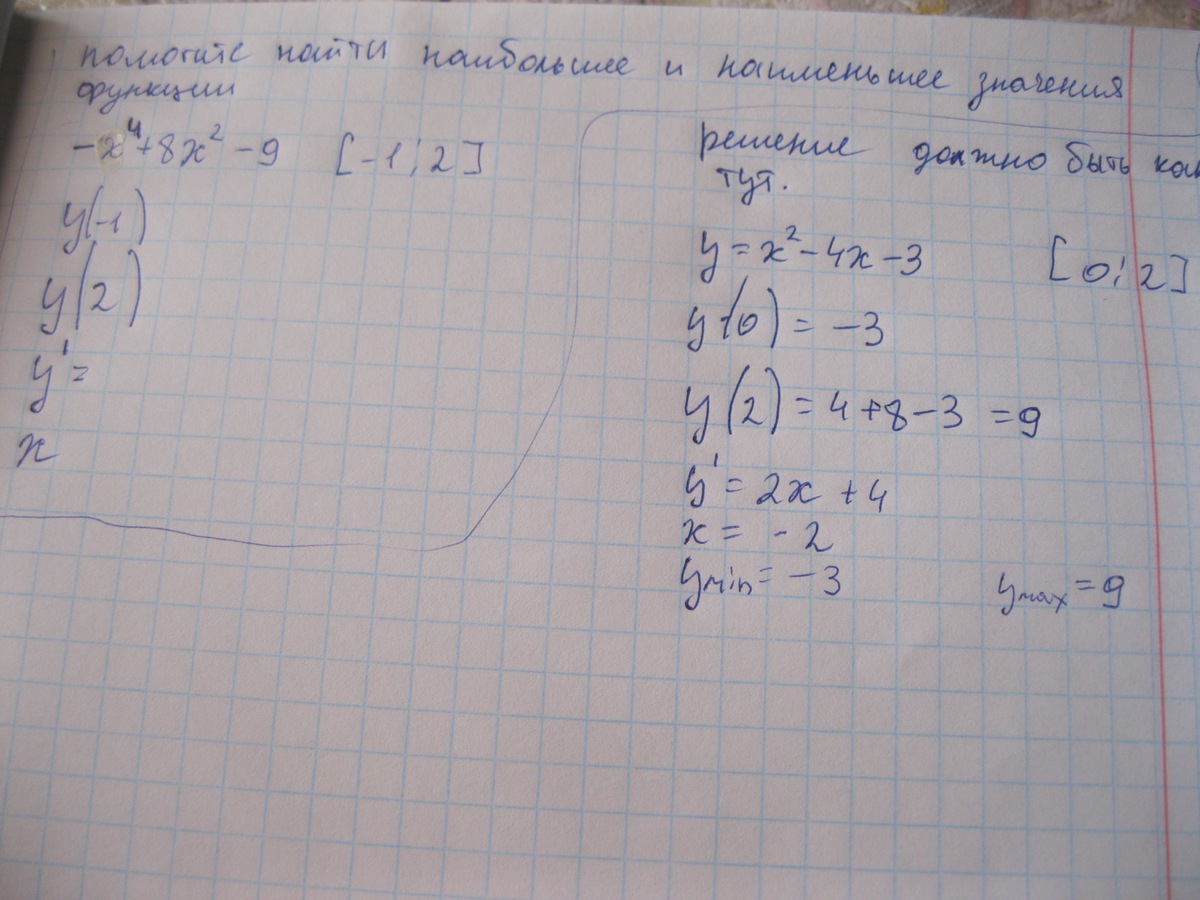 помогите найти наибольшее и наименьшее значения
функции
-x⁴+8x²-9 [-1;2]
y(-1)
y(2)
y'=
x
решение должно быть как
тут.
y=x²-4x-3 [0;2]
y(0)=-3
y(2)=4+8-3=9
y'=2x+4
x=-2
ymin=-3 ymax=9